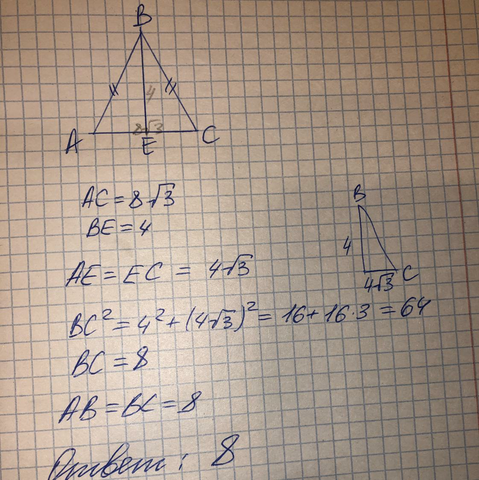 B
4
A
E
C
AC = 8√3
BE = 4
AE = EC = 4√3
B
4
4√3
C
BC² = 4² + (4√3)² = 16 + 16·3 = 64
BC = 8
AB = BC = 8
Ответ: 8